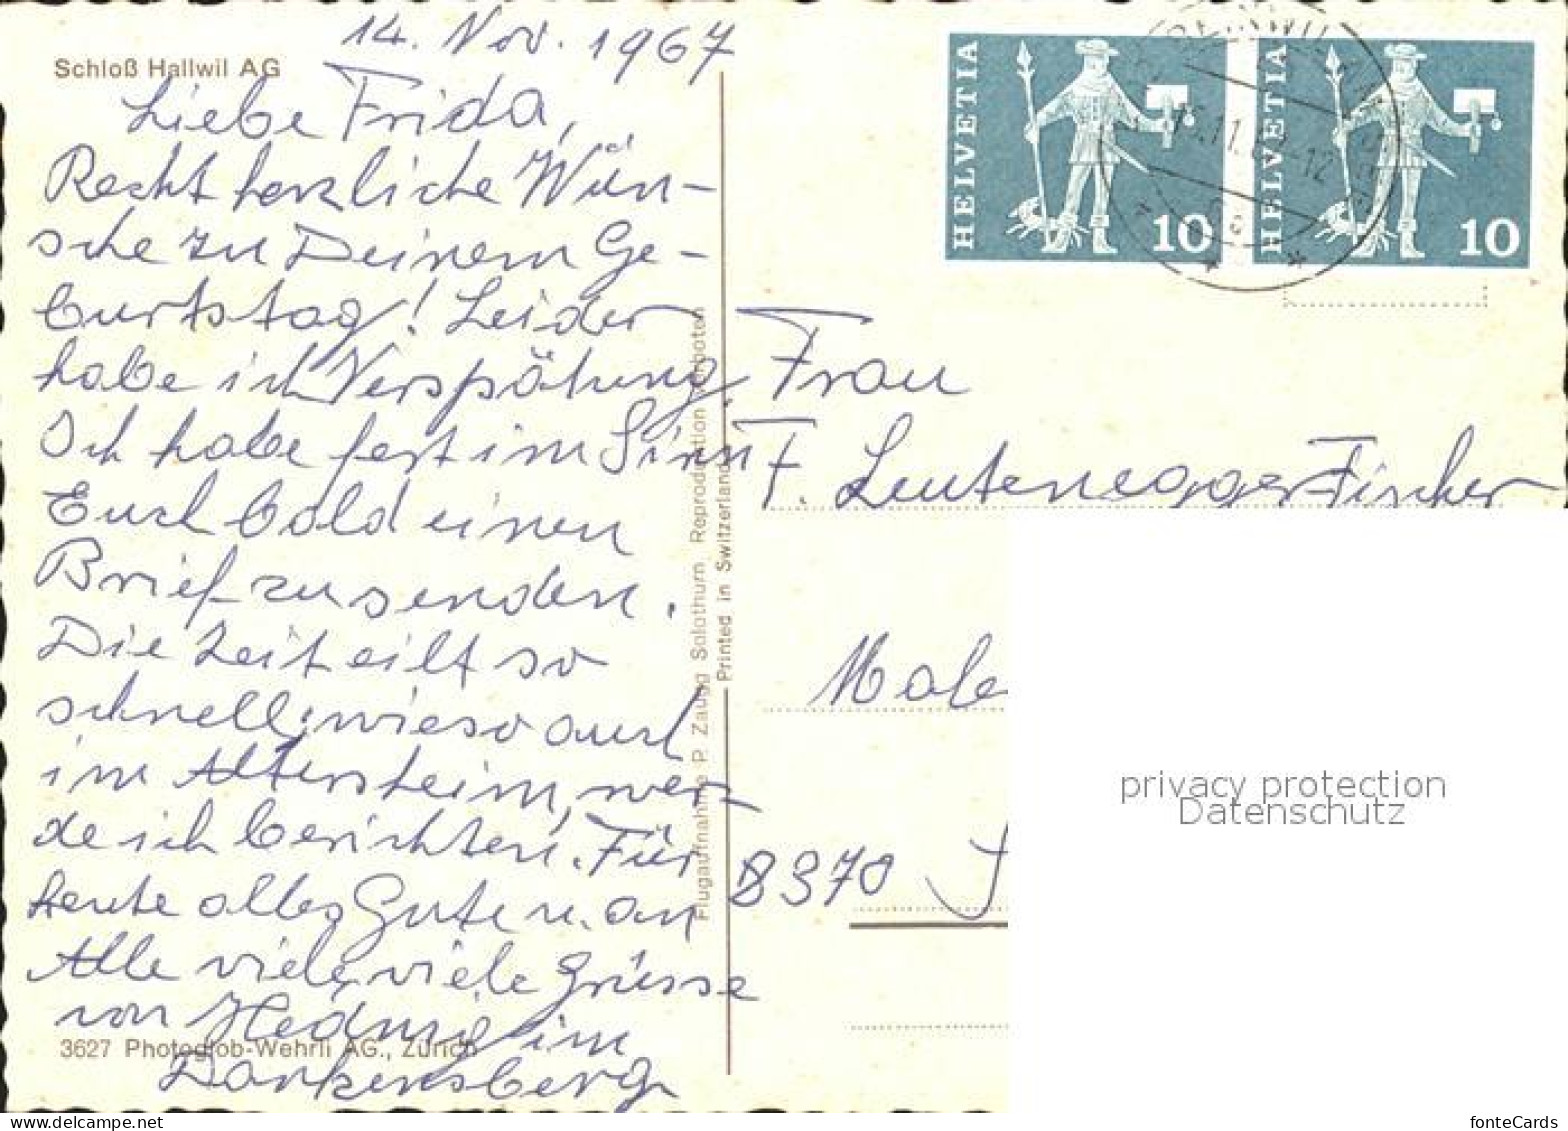 Schloß Hallwil AG
14. Nov. 1967
Liebe Frida,
Recht herzliche Wün-
sche zu Deinem Ge-
burtstag! Leider
habe ich Verspätung.
Ich habe fest im Sinn
Euch bald einen
Brief zu senden.
Die Zeit eilt so
schnell, wieso auch
im Altersheim, wer-
de ich berichten. Für
heute alles Gute u. an
Alle viele, viele Grüsse
von Hedwig im
3627 Photoglob-Wehrli AG., Zürich
Flugaufnahme P. Zaugg Solothurn Reproduktion verboten
Printed in Switzerland
HELVETIA
10
HELVETIA
10
Frau
F. Leutenegger-Fischer
8370
privacy protection
Datenschutz
fonteCards